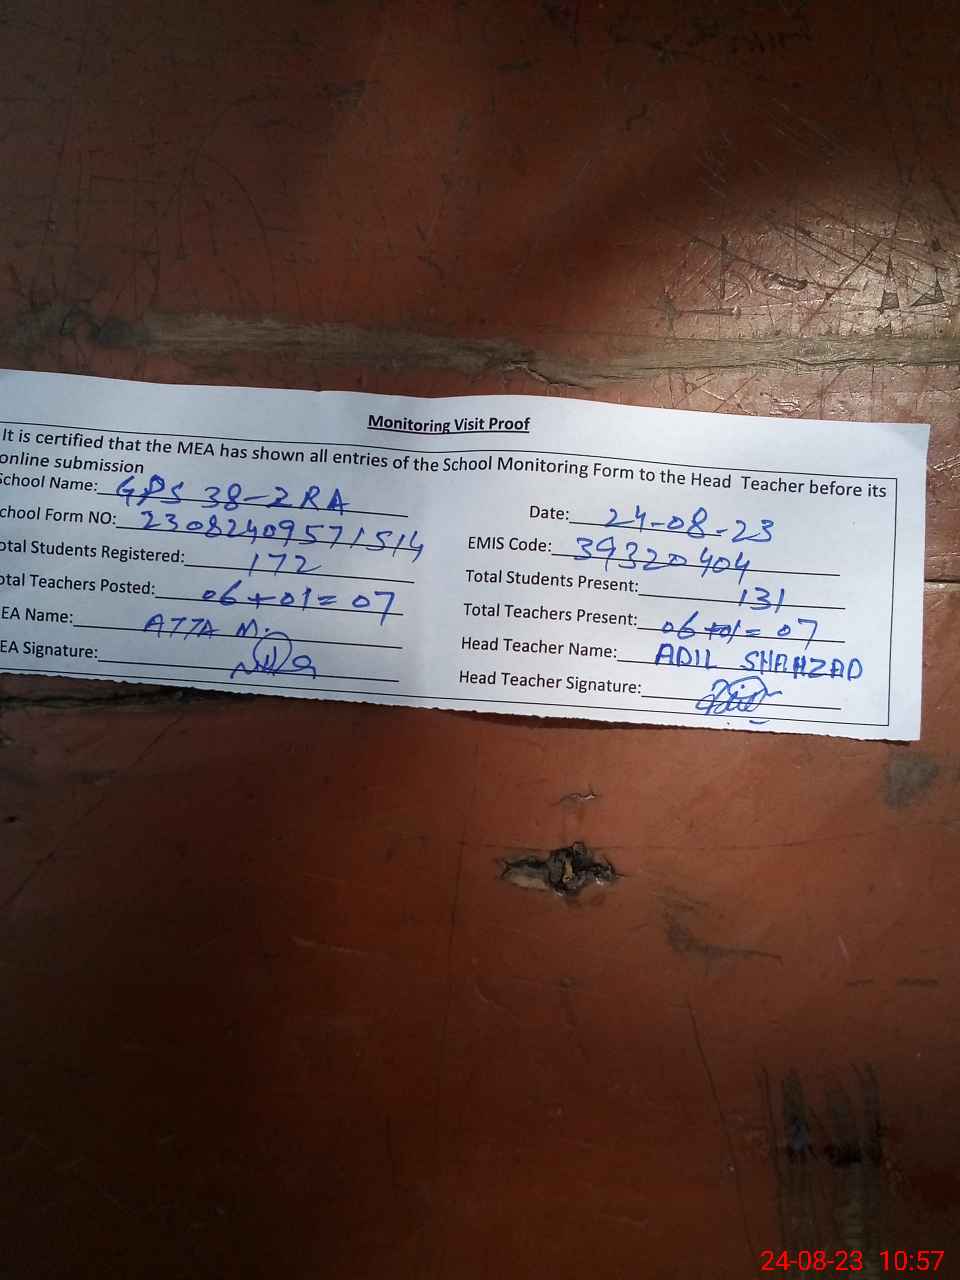 Monitoring Visit Proof
It is certified that the MEA has shown all entries of the School Monitoring Form to the Head Teacher before its
online submission
School Name: GPS 38-2RA
Date: 24-08-23
chool Form NO: 23082409571514
EMIS Code: 39320404
otal Students Registered: 172
Total Students Present: 131
otal Teachers Posted: 06+01=07
Total Teachers Present: 06+01=07
EA Name: ATTA M.
Head Teacher Name: ADIL SHAHZAD
EA Signature:
Head Teacher Signature:
24-08-23 10:57